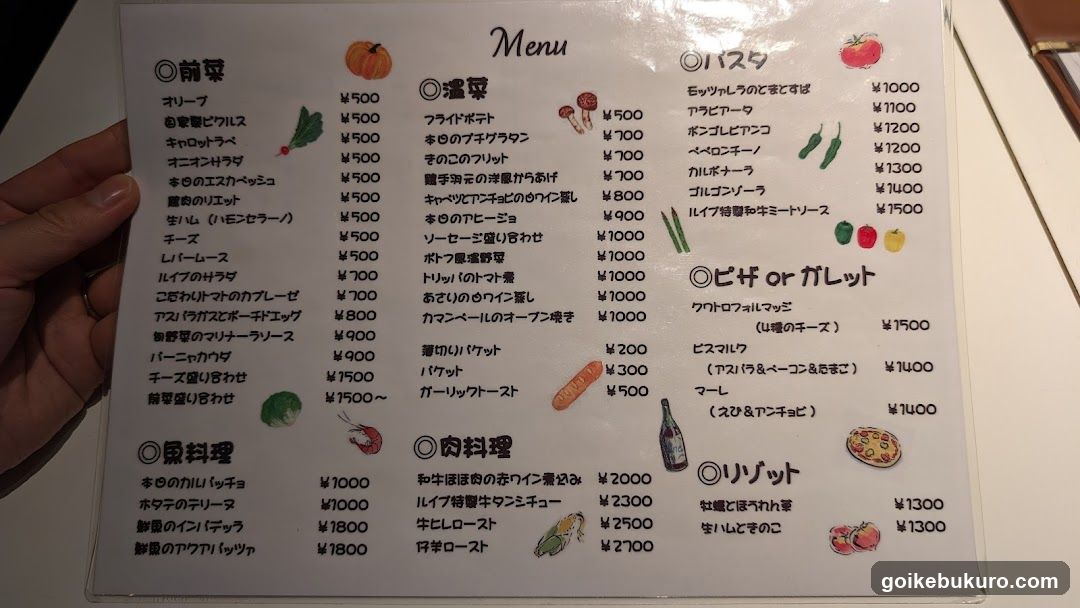 Menu
◎前菜
オリーブ ¥500
自家製ピクルス ¥500
キャロットラペ ¥500
オニオンサラダ ¥500
本日のエスカベッシュ ¥500
鶏肉のリエット ¥500
生ハム（ハモンセラーノ） ¥500
チーズ ¥500
レバームース ¥500
ルイブのサラダ ¥700
こだわりトマトのカプレーゼ ¥700
アスパラガスとポーチドエッグ ¥800
旬野菜のマリナーラソース ¥900
バーニャカウダ ¥900
チーズ盛り合わせ ¥1500
前菜盛り合わせ ¥1500～
◎魚料理
本日のカルパッチョ ¥1000
ホタテのテリーヌ ¥1000
鮮魚のインパデッラ ¥1800
鮮魚のアクアパッツァ ¥1800
◎温菜
フライドポテト ¥500
本日のプチグラタン ¥700
きのこのフリット ¥700
鶏手羽元の洋風からあげ ¥700
キャベツとアンチョビの白ワイン蒸し ¥800
本日のアヒージョ ¥900
ソーセージ盛り合わせ ¥1000
ポトフ風温野菜 ¥1000
トリッパのトマト煮 ¥1000
あさりの白ワイン蒸し ¥1000
カマンベールのオーブン焼き ¥1000
薄切りバケット ¥200
バケット ¥300
ガーリックトースト ¥500
◎肉料理
和牛ほほ肉の赤ワイン煮込み ¥2000
ルイブ特製牛タンシチュー ¥2300
牛ヒレロースト ¥2500
仔羊ロースト ¥2700
◎パスタ
モッツァレラのとまとすぱ ¥1000
アラビアータ ¥1100
ボンゴレビアンコ ¥1200
ペペロンチーノ ¥1200
カルボナーラ ¥1300
ゴルゴンゾーラ ¥1400
ルイブ特製和牛ミートソース ¥1500
◎ピザ or ガレット
クワトロフォルマッジ
（4種のチーズ） ¥1500
ビスマルク
（アスパラ&ベーコン&たまご） ¥1400
マーレ
（えび&アンチョビ） ¥1400
◎リゾット
牡蠣とほうれん草 ¥1300
生ハムときのこ ¥1300
goikebukuro.com